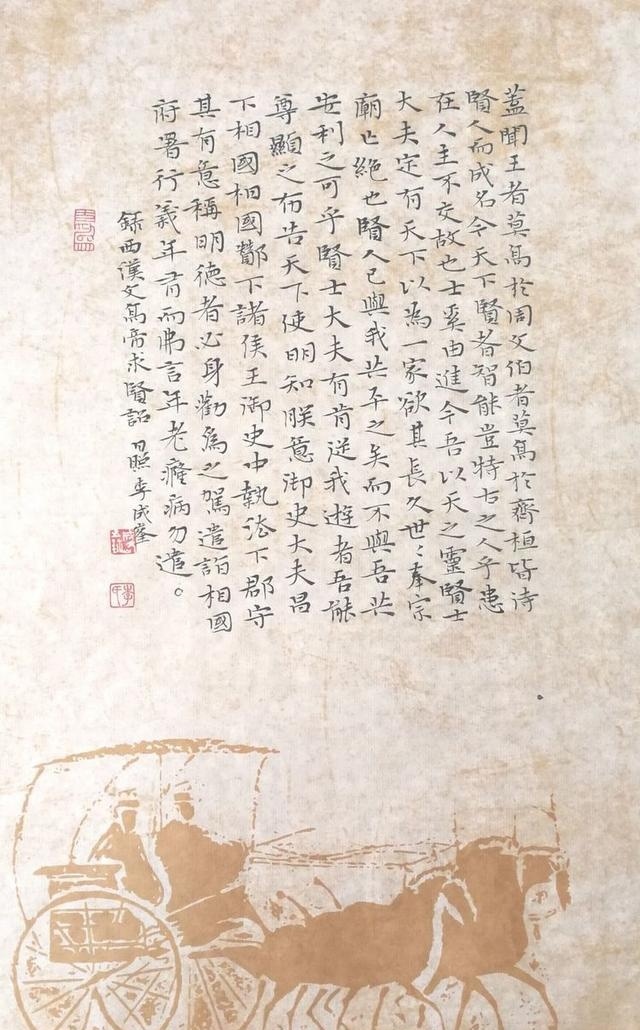 蓋聞王者莫高於周文伯者莫高於齊桓皆待
賢人而成名今天下賢者智能豈特古之人乎患
在人主不交故也士奚由進今吾以天之靈賢士
大夫定有天下以為一家欲其長久世〻奉宗
廟亡絕也賢人已與我共平之矣而不與吾共
安利之可乎賢士大夫有肯從我遊者吾能
尊顯之布告天下使明知朕意御史大夫昌
下相國相國酇下諸侯王御史中執法下郡守
其有意稱明德者必身勸為之駕遣詣相國
府署行義年有而弗言年老癃病勿遣。
錄西漢文高帝求賢詔 日照李成峯